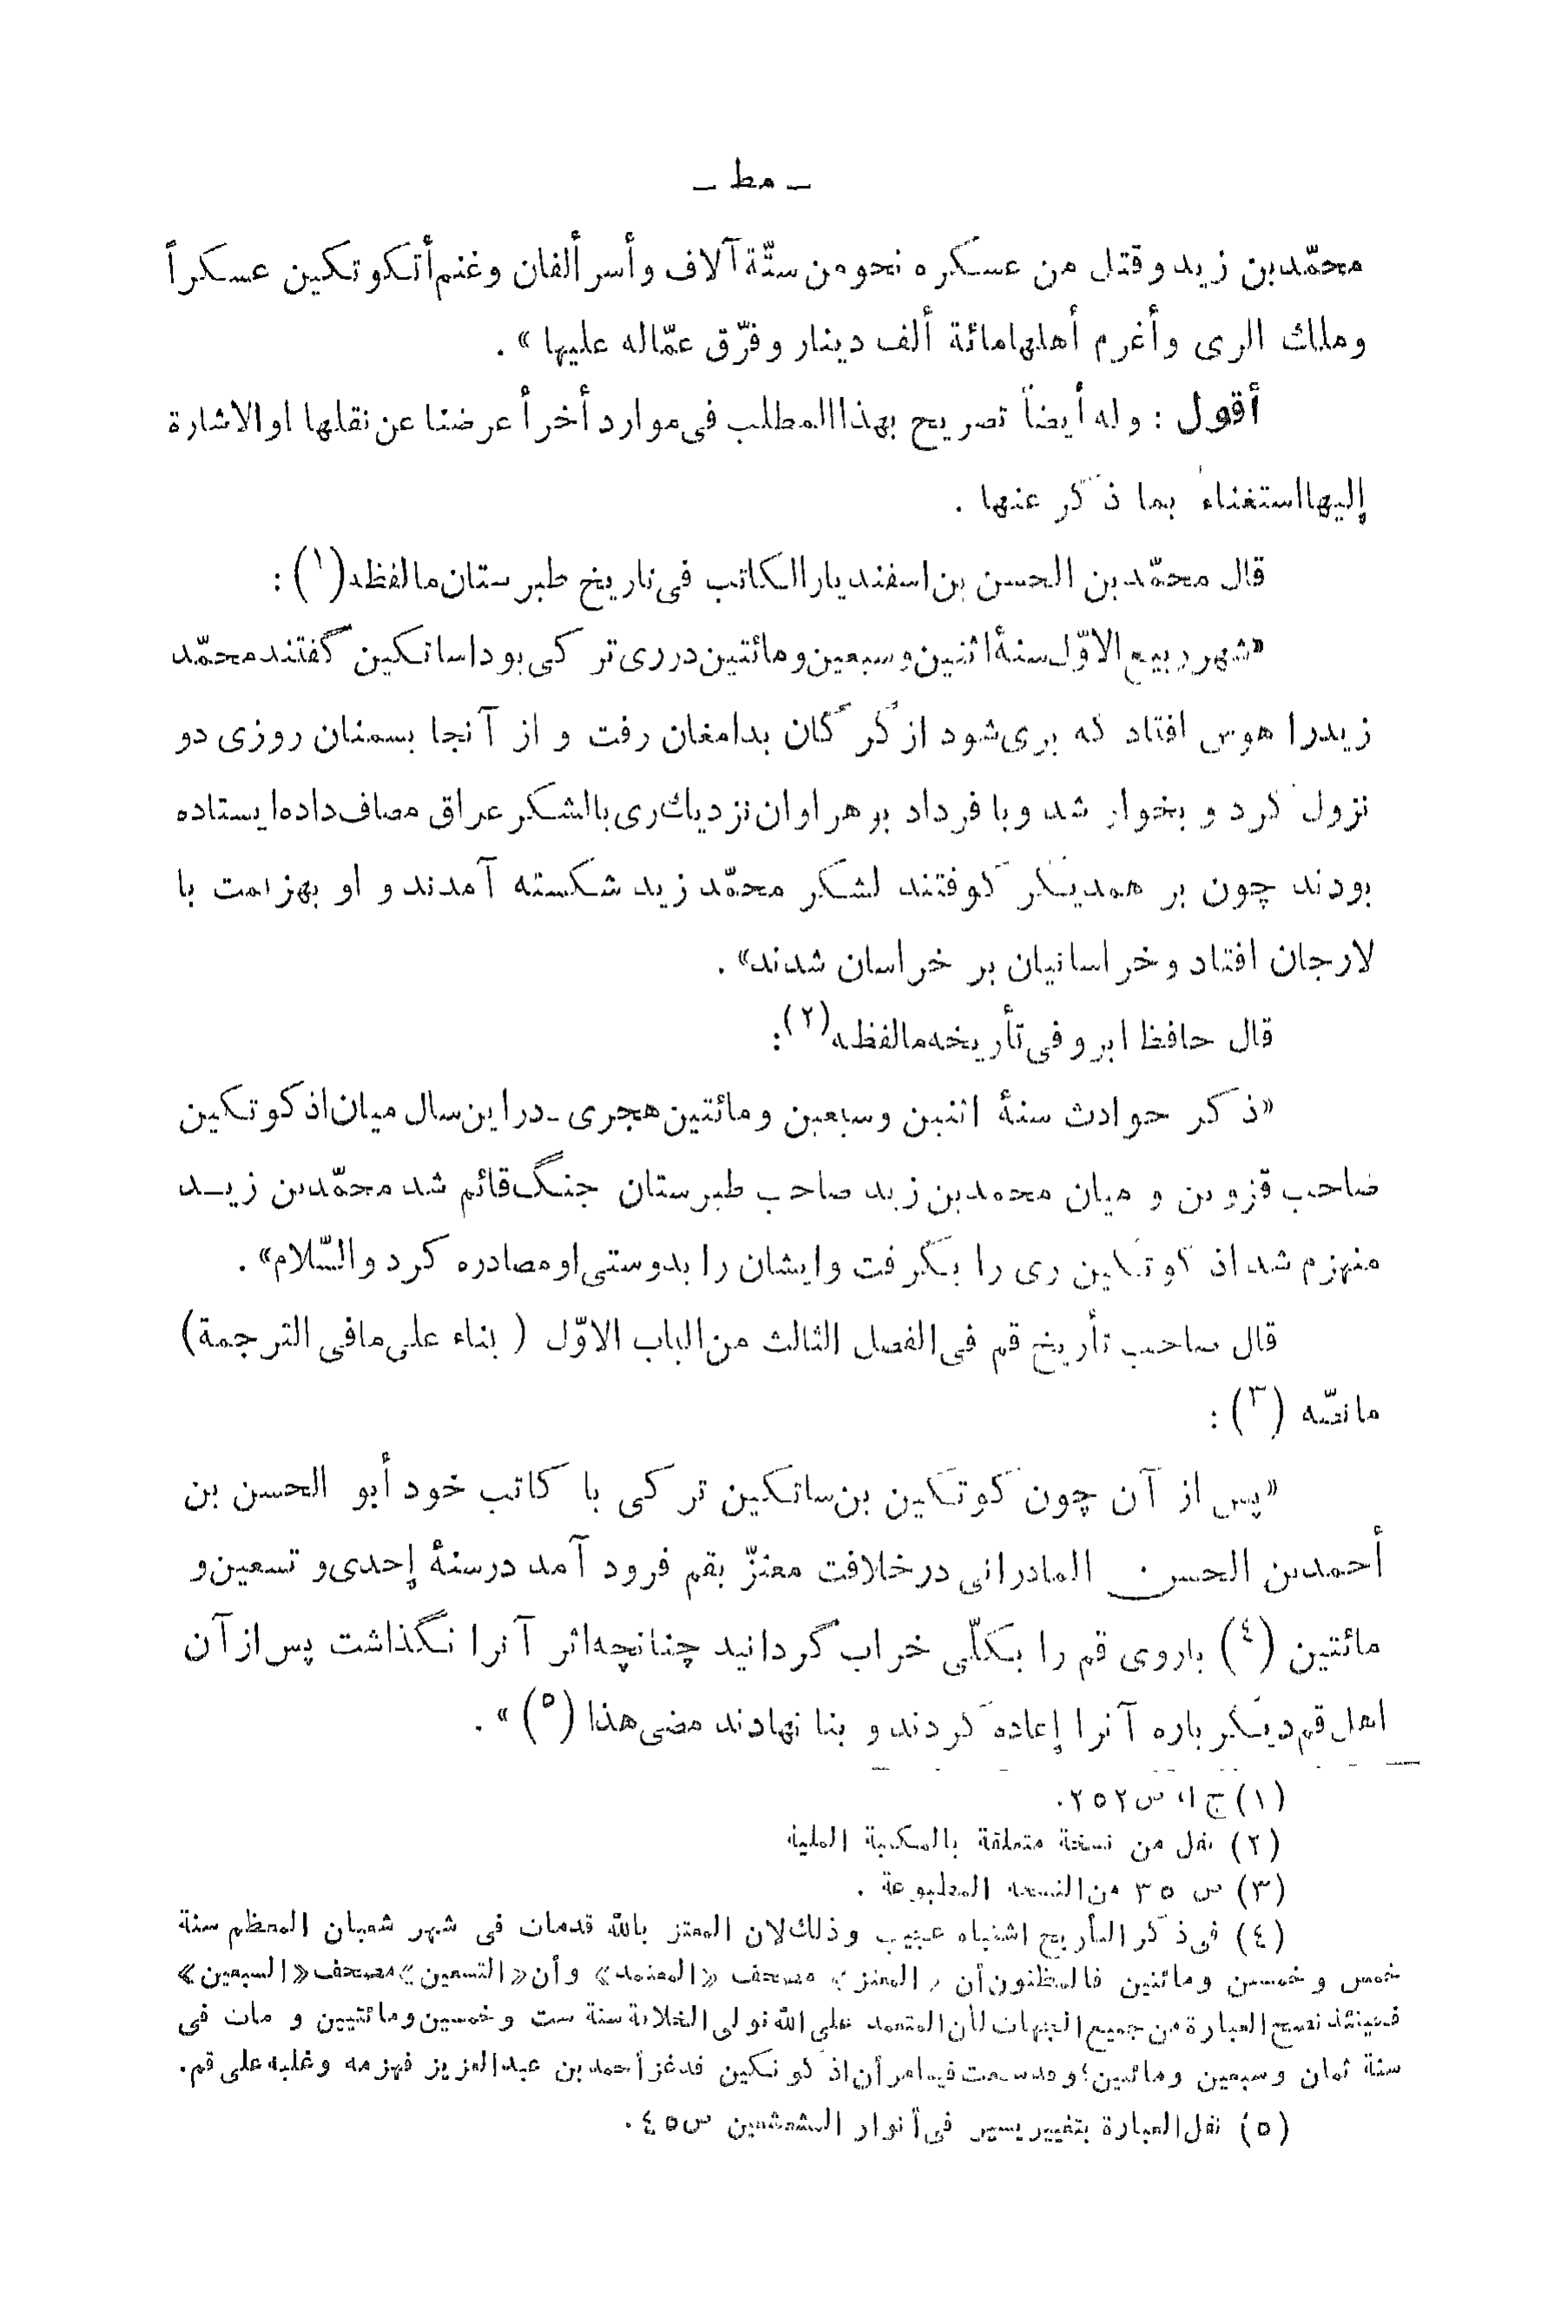 ـ مط ـ
محمّدبن زيد وقتل من عسكره نحو من ستّة آلاف وأسر ألفان وغنم أتكوتكين عسكراً
وملك الرى وأغرم أهلها مائة ألف دينار وفرّق عمّاله عليها » .
أقول : وله أيضاً تصريح بهذا المطلب فى موارد أخر أعرضنا عن نقلها او الاشارة
إليها استغناء بما ذكر عنها .
قال محمّد بن الحسن بن اسفنديار الكاتب فى تاريخ طبرستان مالفظه (١) :
«شهر ربيع الاوّل سنۀ اثنين و سبعين و مائتين در رى تركى بود اساتكين گفتند محمّد
زيد را هوس افتاد كه برى شود از گرگان بدامغان رفت و از آنجا بسمنان روزى دو
نزول كرد و بخوار شد و با فرداد بر هراوان نزديك رى بالشكر عراق مصاف داده ايستاده
بودند چون بر همديگر كوفتند لشكر محمّد زيد شكسته آمدند و او بهزيمت با
لارجان افتاد و خراسانيان بر خراسان شدند» .
قال حافظ ابرو فى تأريخه مالفظه (٢) :
«ذكر حوادث سنۀ اثنين وسبعين ومائتين هجرى ـ در اين سال ميان اذكوتكين
صاحب قزوين و ميان محمد بن زيد صاحب طبرستان جنگ قائم شد محمّدبن زيـد
منهزم شد اذكوتكين رى را بگرفت و ايشان را بدوستى او مصادره كرد والسّلام» .
قال صاحب تأريخ قم فى الفصل الثالث من الباب الاوّل ( بناء على مافى الترجمة)
مانصّه (٣) :
«پس از آن چون كوتكين بن ساتكين تركى با كاتب خود أبو الحسن بن
أحمدبن الحسن المادرانى درخلافت معتزّ بقم فرود آمد در سنۀ إحدى و تسعين و
مائتين (٤) باروى قم را بكلّى خراب گردانيد چنانچه اثر آنرا نگذاشت پس از آن
اهل قم ديگر باره آنرا إعاده كردند و بنا نهادند مضى هذا (٥) » .
(١) ج ١، ص ٢٥٢.
(٢) نقل من نسخة متعلقة بالمكتبة الملية
(٣) ص ٣٥ من النسخه المطبوعة .
(٤) فى ذكر التأريخ اشتباه عجيب وذلك لان المعتز بالله قدمات فى شهر شعبان المعظم سنة
خمس و خمسين ومائتين فالمظنون أن «المعتز» مصحف «المعتمد» وأن «التسعين» مصحف «السبعين»
فحينئذ تصح العبارة من جميع الجهات لأن المتعمد على الله تولى الخلافة سنة ست وخمسين ومائتيين و مات فى
سنة ثمان وسبعين ومائتين؛ وقد سمعت فيما مر أن اذكوتكين قد غزا أحمد بن عبدالعزيز فهزمه وغلبه على قم.
(٥) نقل العبارة بتغيير يسير فى أنوار المشعشعين ص ٤٥.